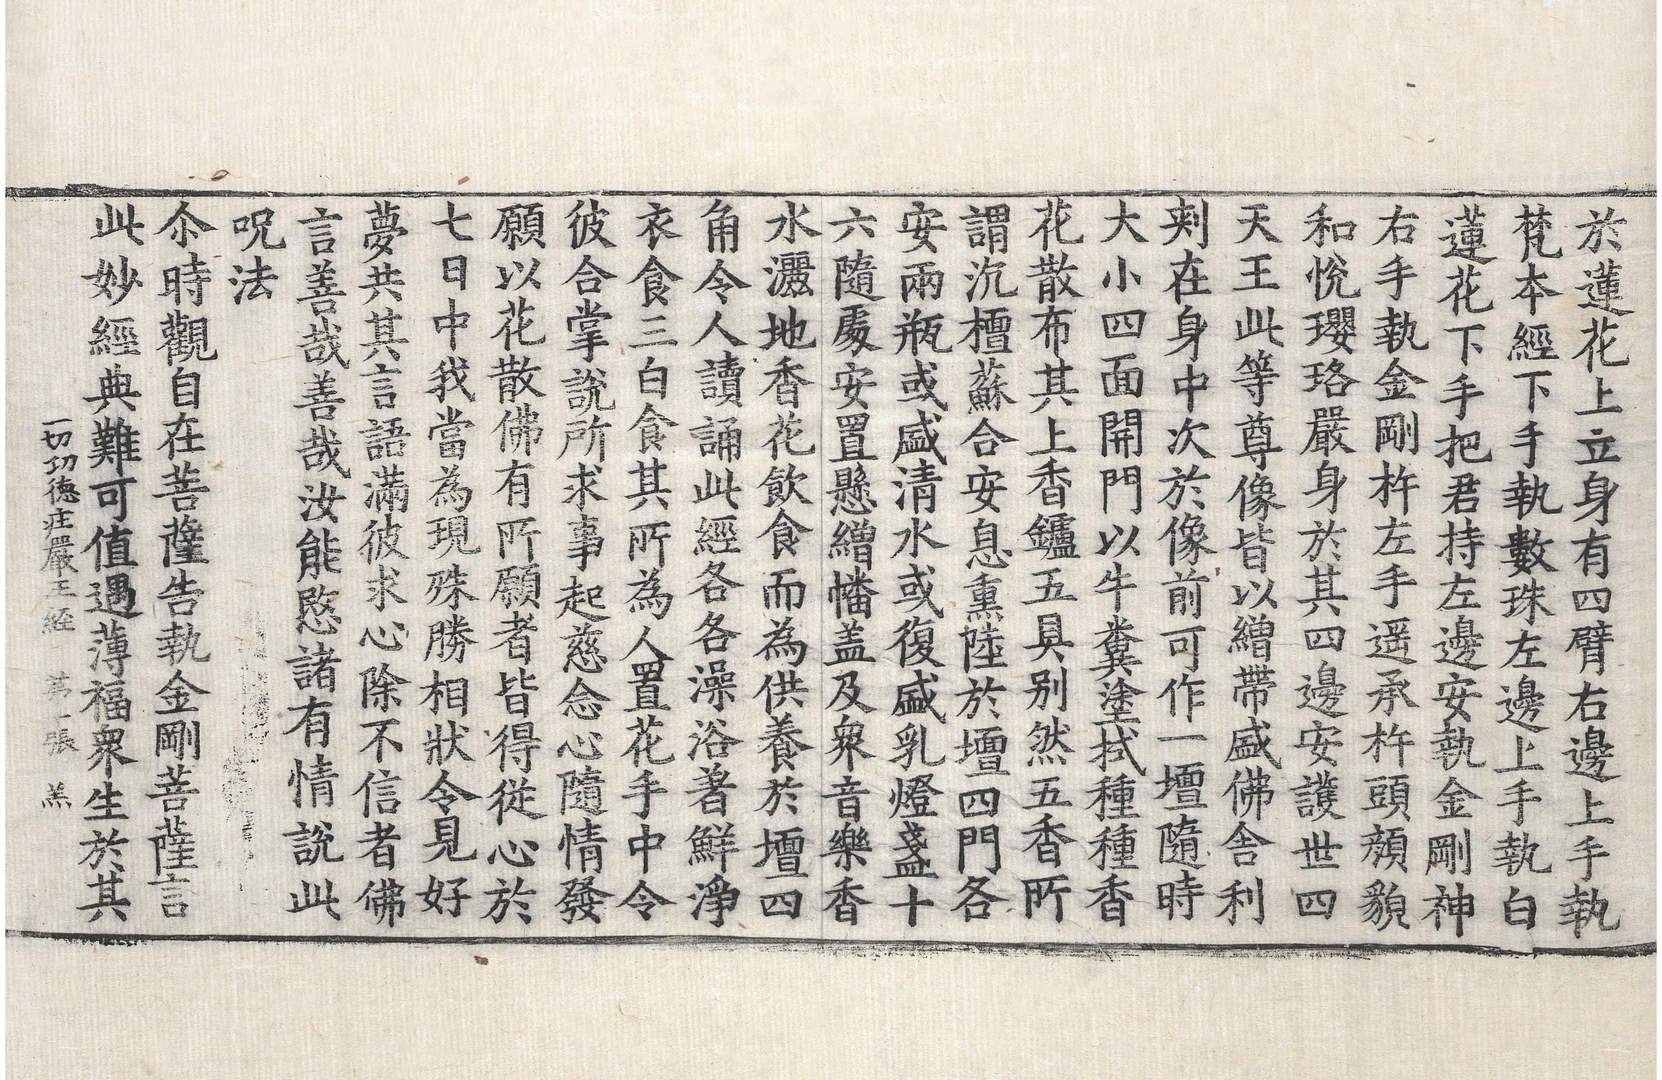 於蓮花上立身有四臂右邊上手執
梵本經下手執數珠左邊上手執白
蓮花下手把君持左邊安執金剛神
右手執金剛杵左手遥承杵頭顏貌
和悅瓔珞嚴身於其四邊安護世四
天王此等尊像皆以繒帶盛佛舍利
剌在身中次於像前可作一壇隨時
大小四面開門以牛糞塗拭種種香
花散布其上香鑪五具别然五香所
謂沉檀蘇合安息熏陸於壇四門各
安兩瓶或盛清水或復盛乳燈盞十
六隨處安置懸繒幡盖及衆音樂香
水灑地香花飲食而為供養於壇四
角令人讀誦此經各各澡浴著鮮淨
衣食三白食其所為人置花手中令
彼合掌說所求事起慈念心隨情發
願以花散佛有所願者皆得從心於
七日中我當為現殊勝相狀令見好
夢共其言語滿彼求心除不信者佛
言善哉善哉汝能愍諸有情說此
呪法
尒時觀自在菩薩告執金剛菩薩言
此妙經典難可值遇薄福衆生於其
一切功德庄嚴王經 第 張 羔